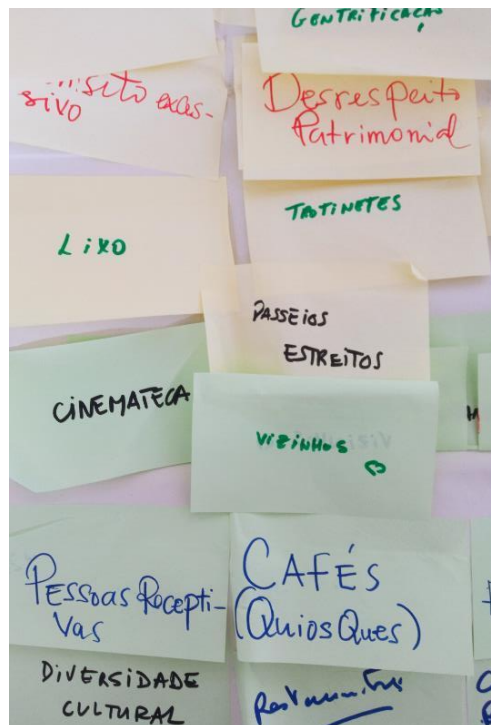 GENTRIFICAÇÃO
exces-
sivo
Desrespeito
Patrimonial
TROTINETES
LIXO
PASSEIOS
ESTREITOS
CINEMATECA
VIZINHOS
PESSOAS Recepti-
vas
CAFÉS
(QuiosQues)
DIVERSIDADE
CULTURAL